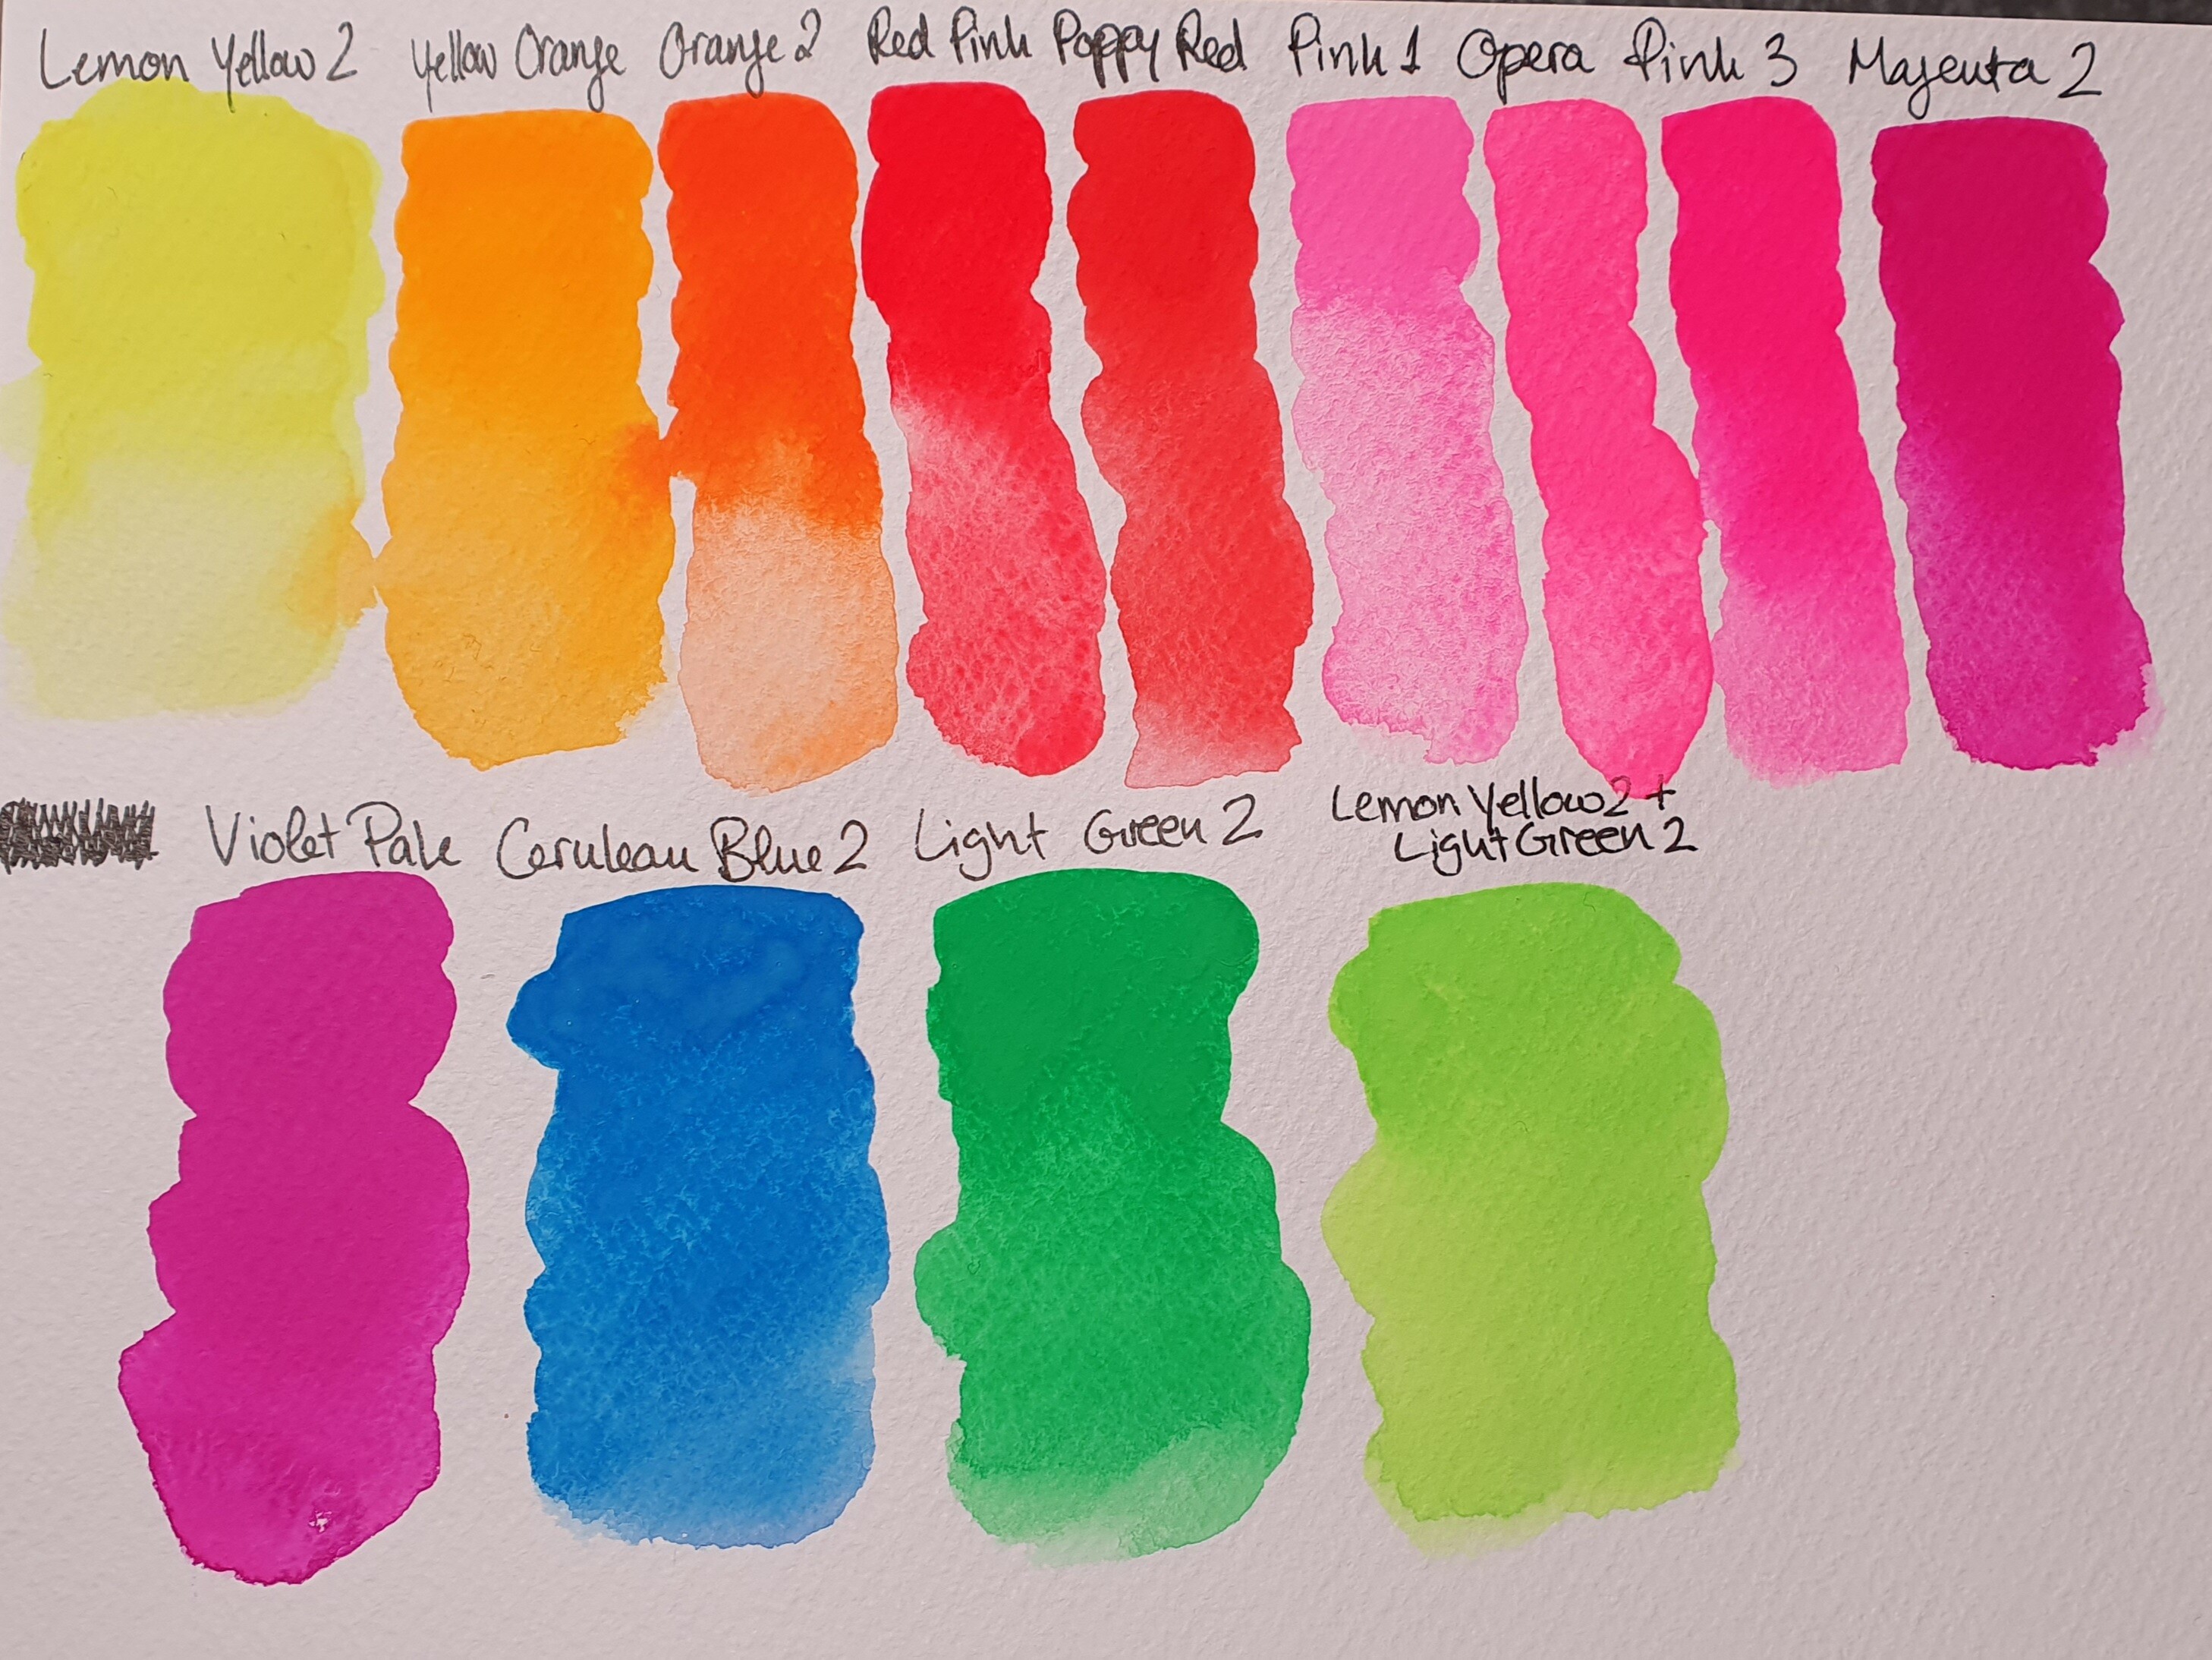 Lemon Yellow 2 Yellow Orange Orange 2 Red Pink Poppy Red Pink 1 Opera Pink 3 Majenta 2
Violet Pale Ceruleau Blue 2 Light Green 2 Lemon Yellow 2 +
Light Green 2